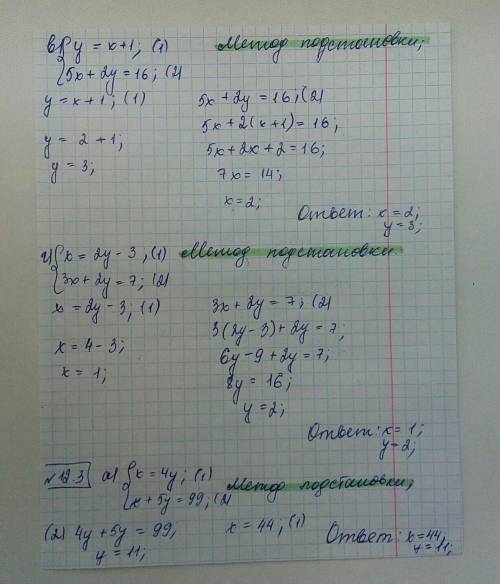 в) { y = x+1; (1) Метод подстановки;
{ 5x+2y=16; (2)
y = x+1; (1) 5x+2y=16; (2)
5x+2(x+1)=16;
y = 2+1; 5x+2x+2=16;
y = 3; 7x=14;
x=2;
Ответ: x=2;
y=3;
г) { x = 2y-3; (1) Метод подстановки.
{ 3x+2y=7; (2)
x = 2y-3; (1) 3x+2y=7; (2)
3(2y-3)+2y=7;
x = 4-3; 6y-9+2y=7;
x = 1; 8y=16;
y=2;
Ответ: x=1;
y=2;
№12.3 а) { x=4y; (1)
{ x+5y=99; (2) Метод подстановки;
(2) 4y+5y=99, x=44; (1) Ответ: x=44,
y=11; y=11;